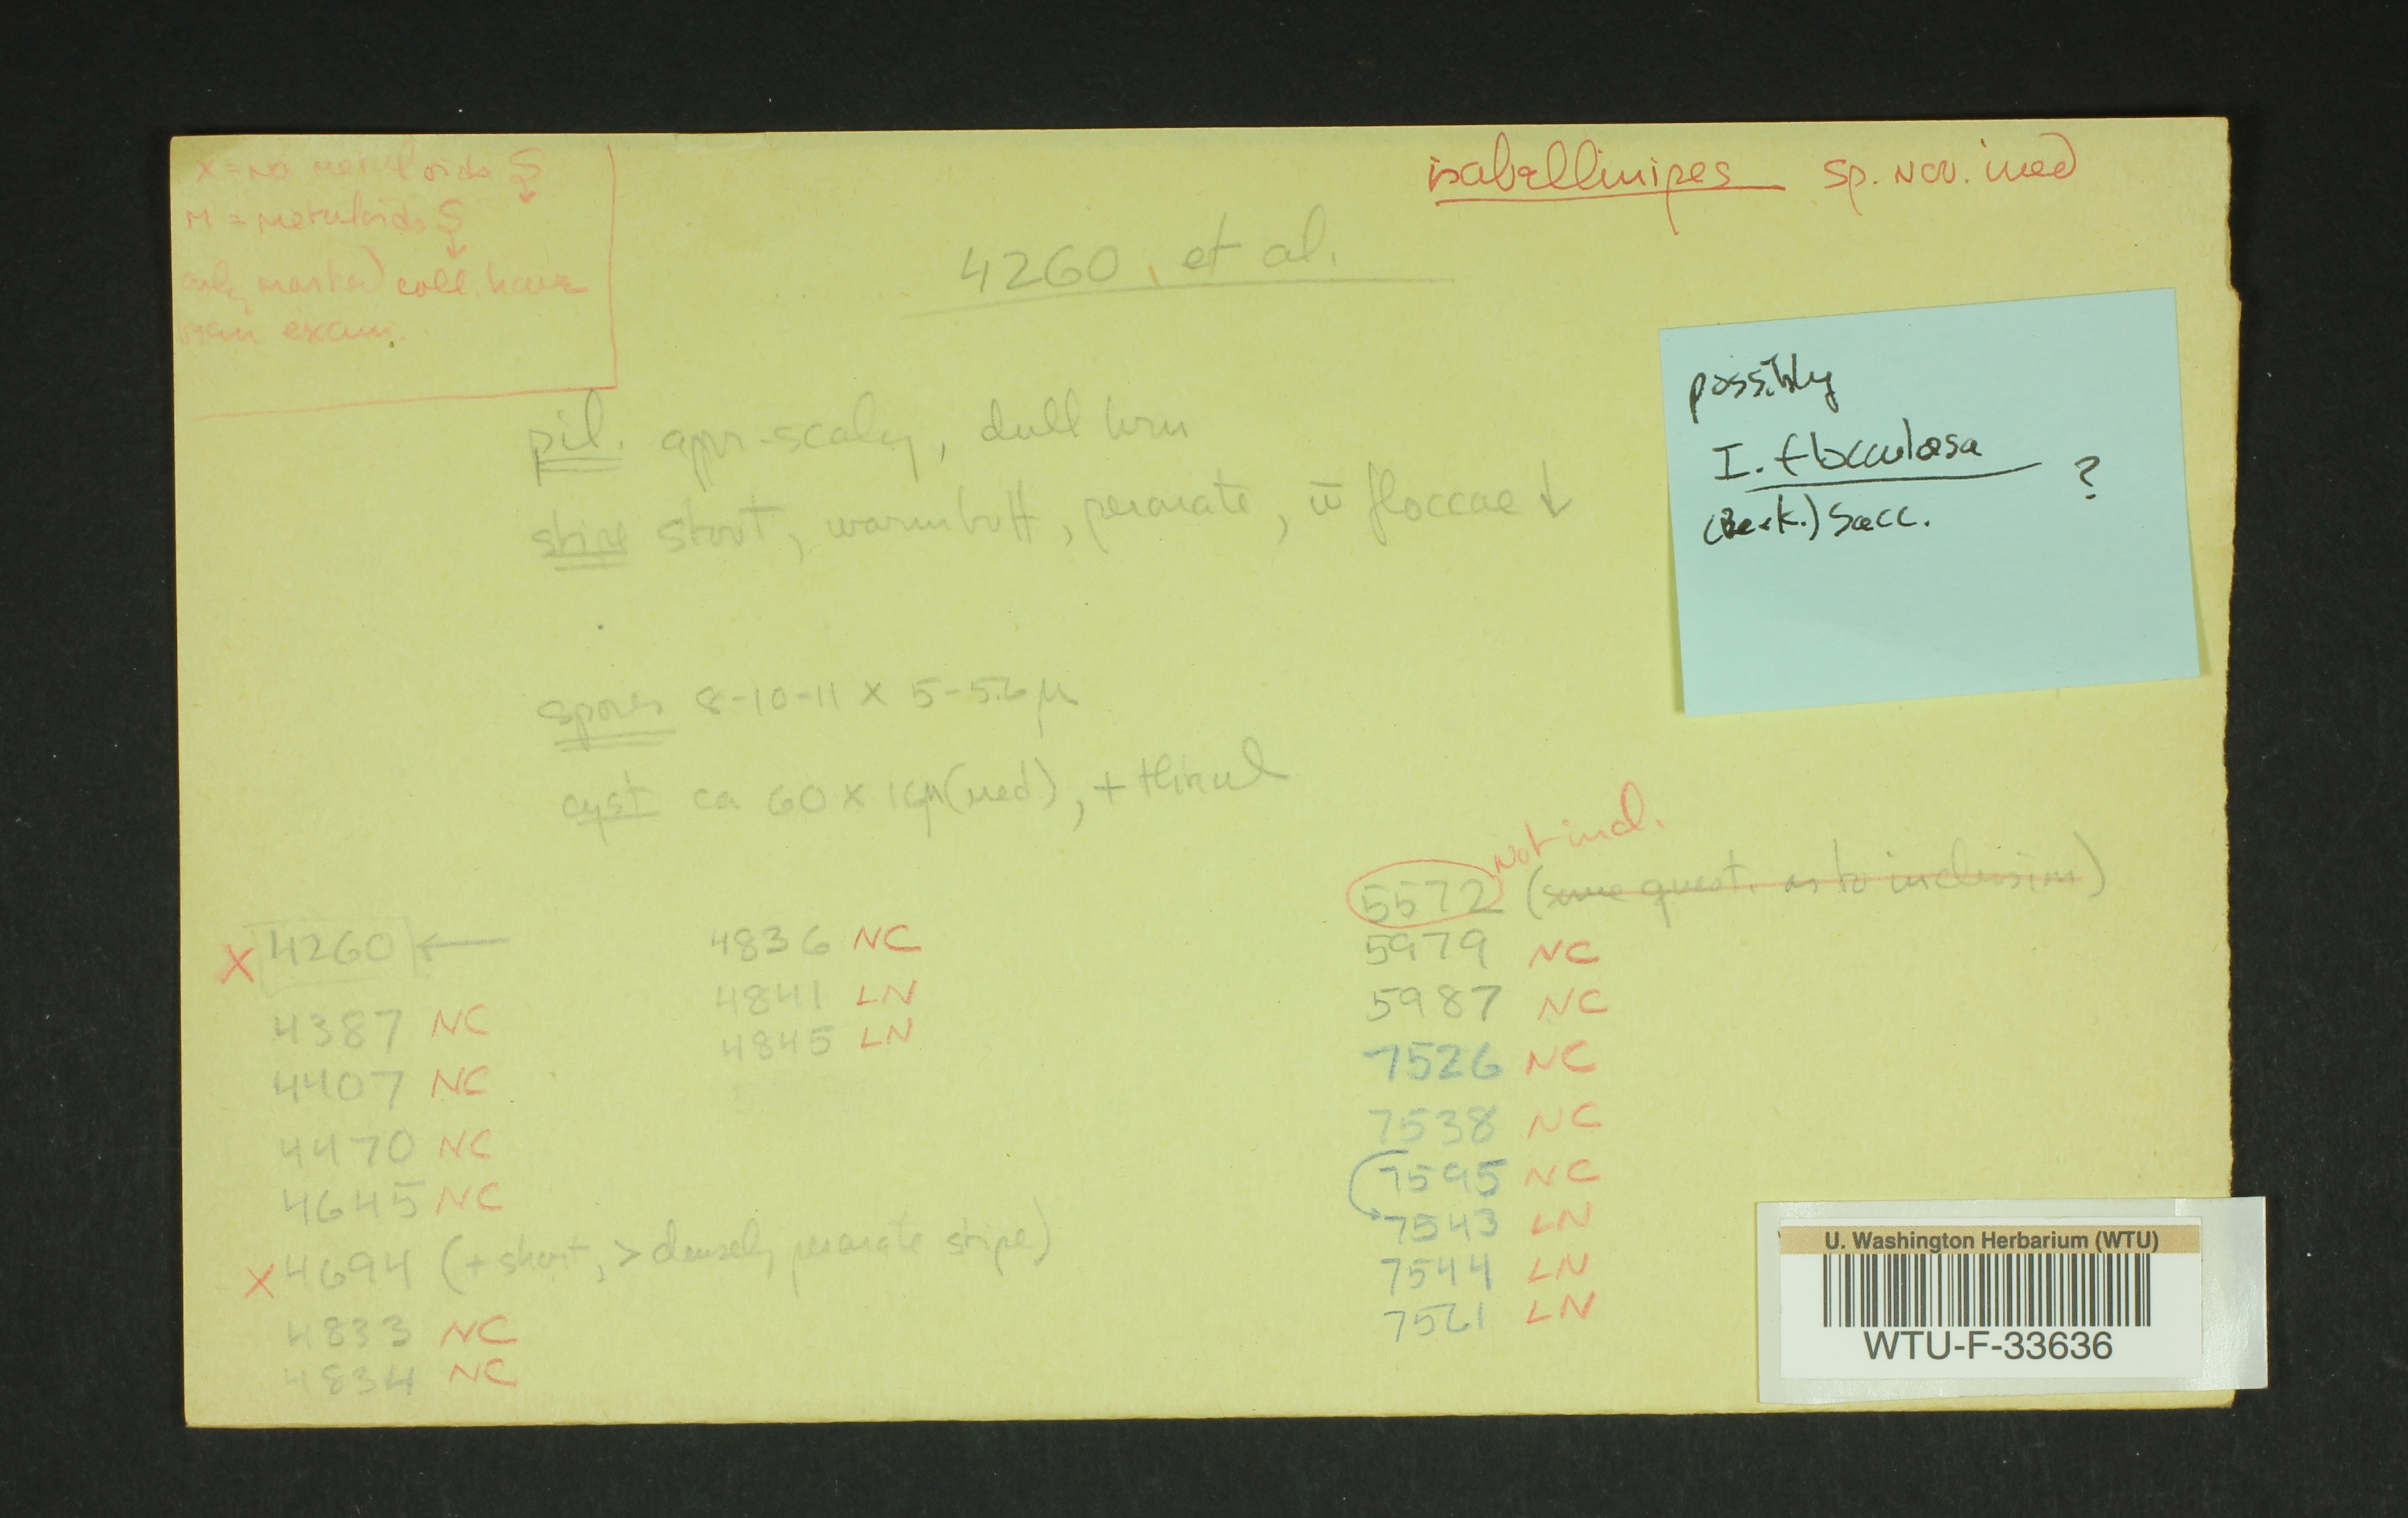 X = no metuloids ↓
M = metuloids ↓
only marked coll. have
been exam.
isabellinipes sp. nov. ined
4260, et al.
pil. appr-scaly, dull brn
stipe stout, warm buff, peronate, w̄ floccae ↓
possibly
I. flocculosa
(Berk.) Sacc. ?
spores 8-10-11 x 5-5.6 μ
cyst ca 60 x 16μ (med), + thin
Not incl.
5572 (some quest. as to inclusion)
5979 NC
5987 NC
7526 NC
7538 NC
7595 NC
7543 LN
7544 LN
7521 LN
X 4260 ←
4387 NC
4407 NC
4470 NC
4645 NC
X 4694 (+ short, > densely peronate stipe)
4833 NC
4834 NC
4836 NC
4841 LN
4845 LN
U. Washington Herbarium (WTU)
WTU-F-33636